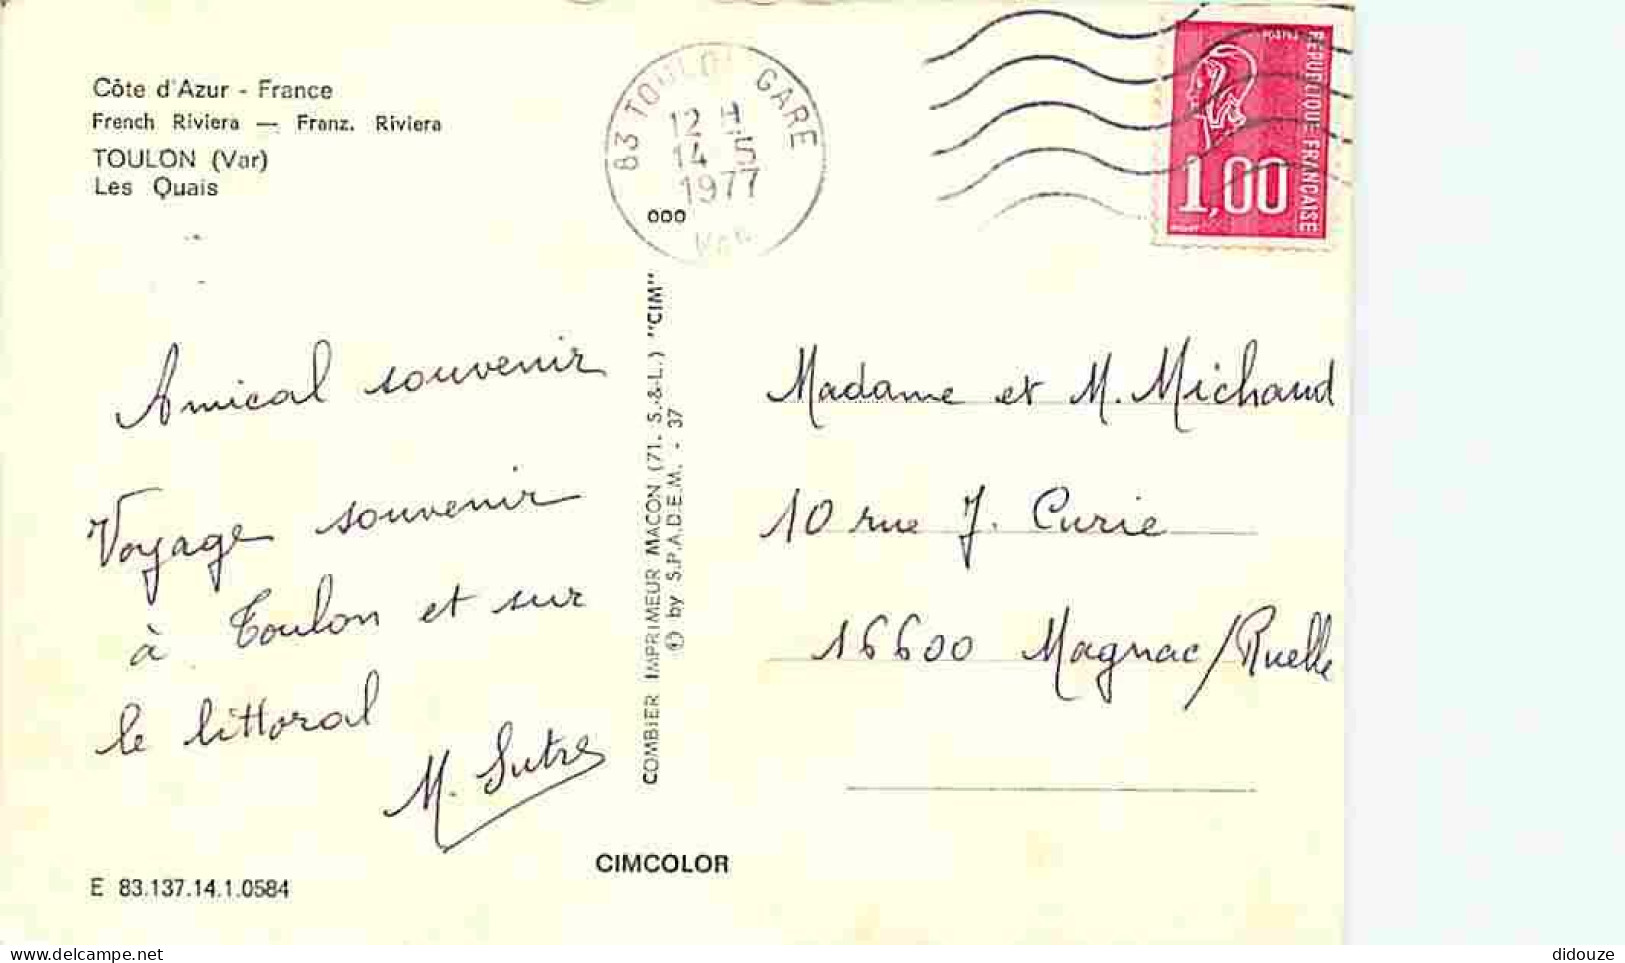 Côte d'Azur - France
French Riviera — Franz. Riviera
TOULON (Var)
Les Quais
83 TOULON GARE
12 H
14 - 5
1977
000
VAR
POSTES
REPUBLIQUE FRANÇAISE
1,00
Amical souvenir
Voyage souvenir
à Toulon et sur
le littoral
M. Sutre
E 83.137.14.1.0584
COMBIER IMPRIMEUR MACON (71. S.-&-L.) "CIM"
by S.P.A.D.E.M. - 37
CIMCOLOR
Madame et M. Michaud
10 rue J. Curie
16600 Magnac/Ruelle
didouze